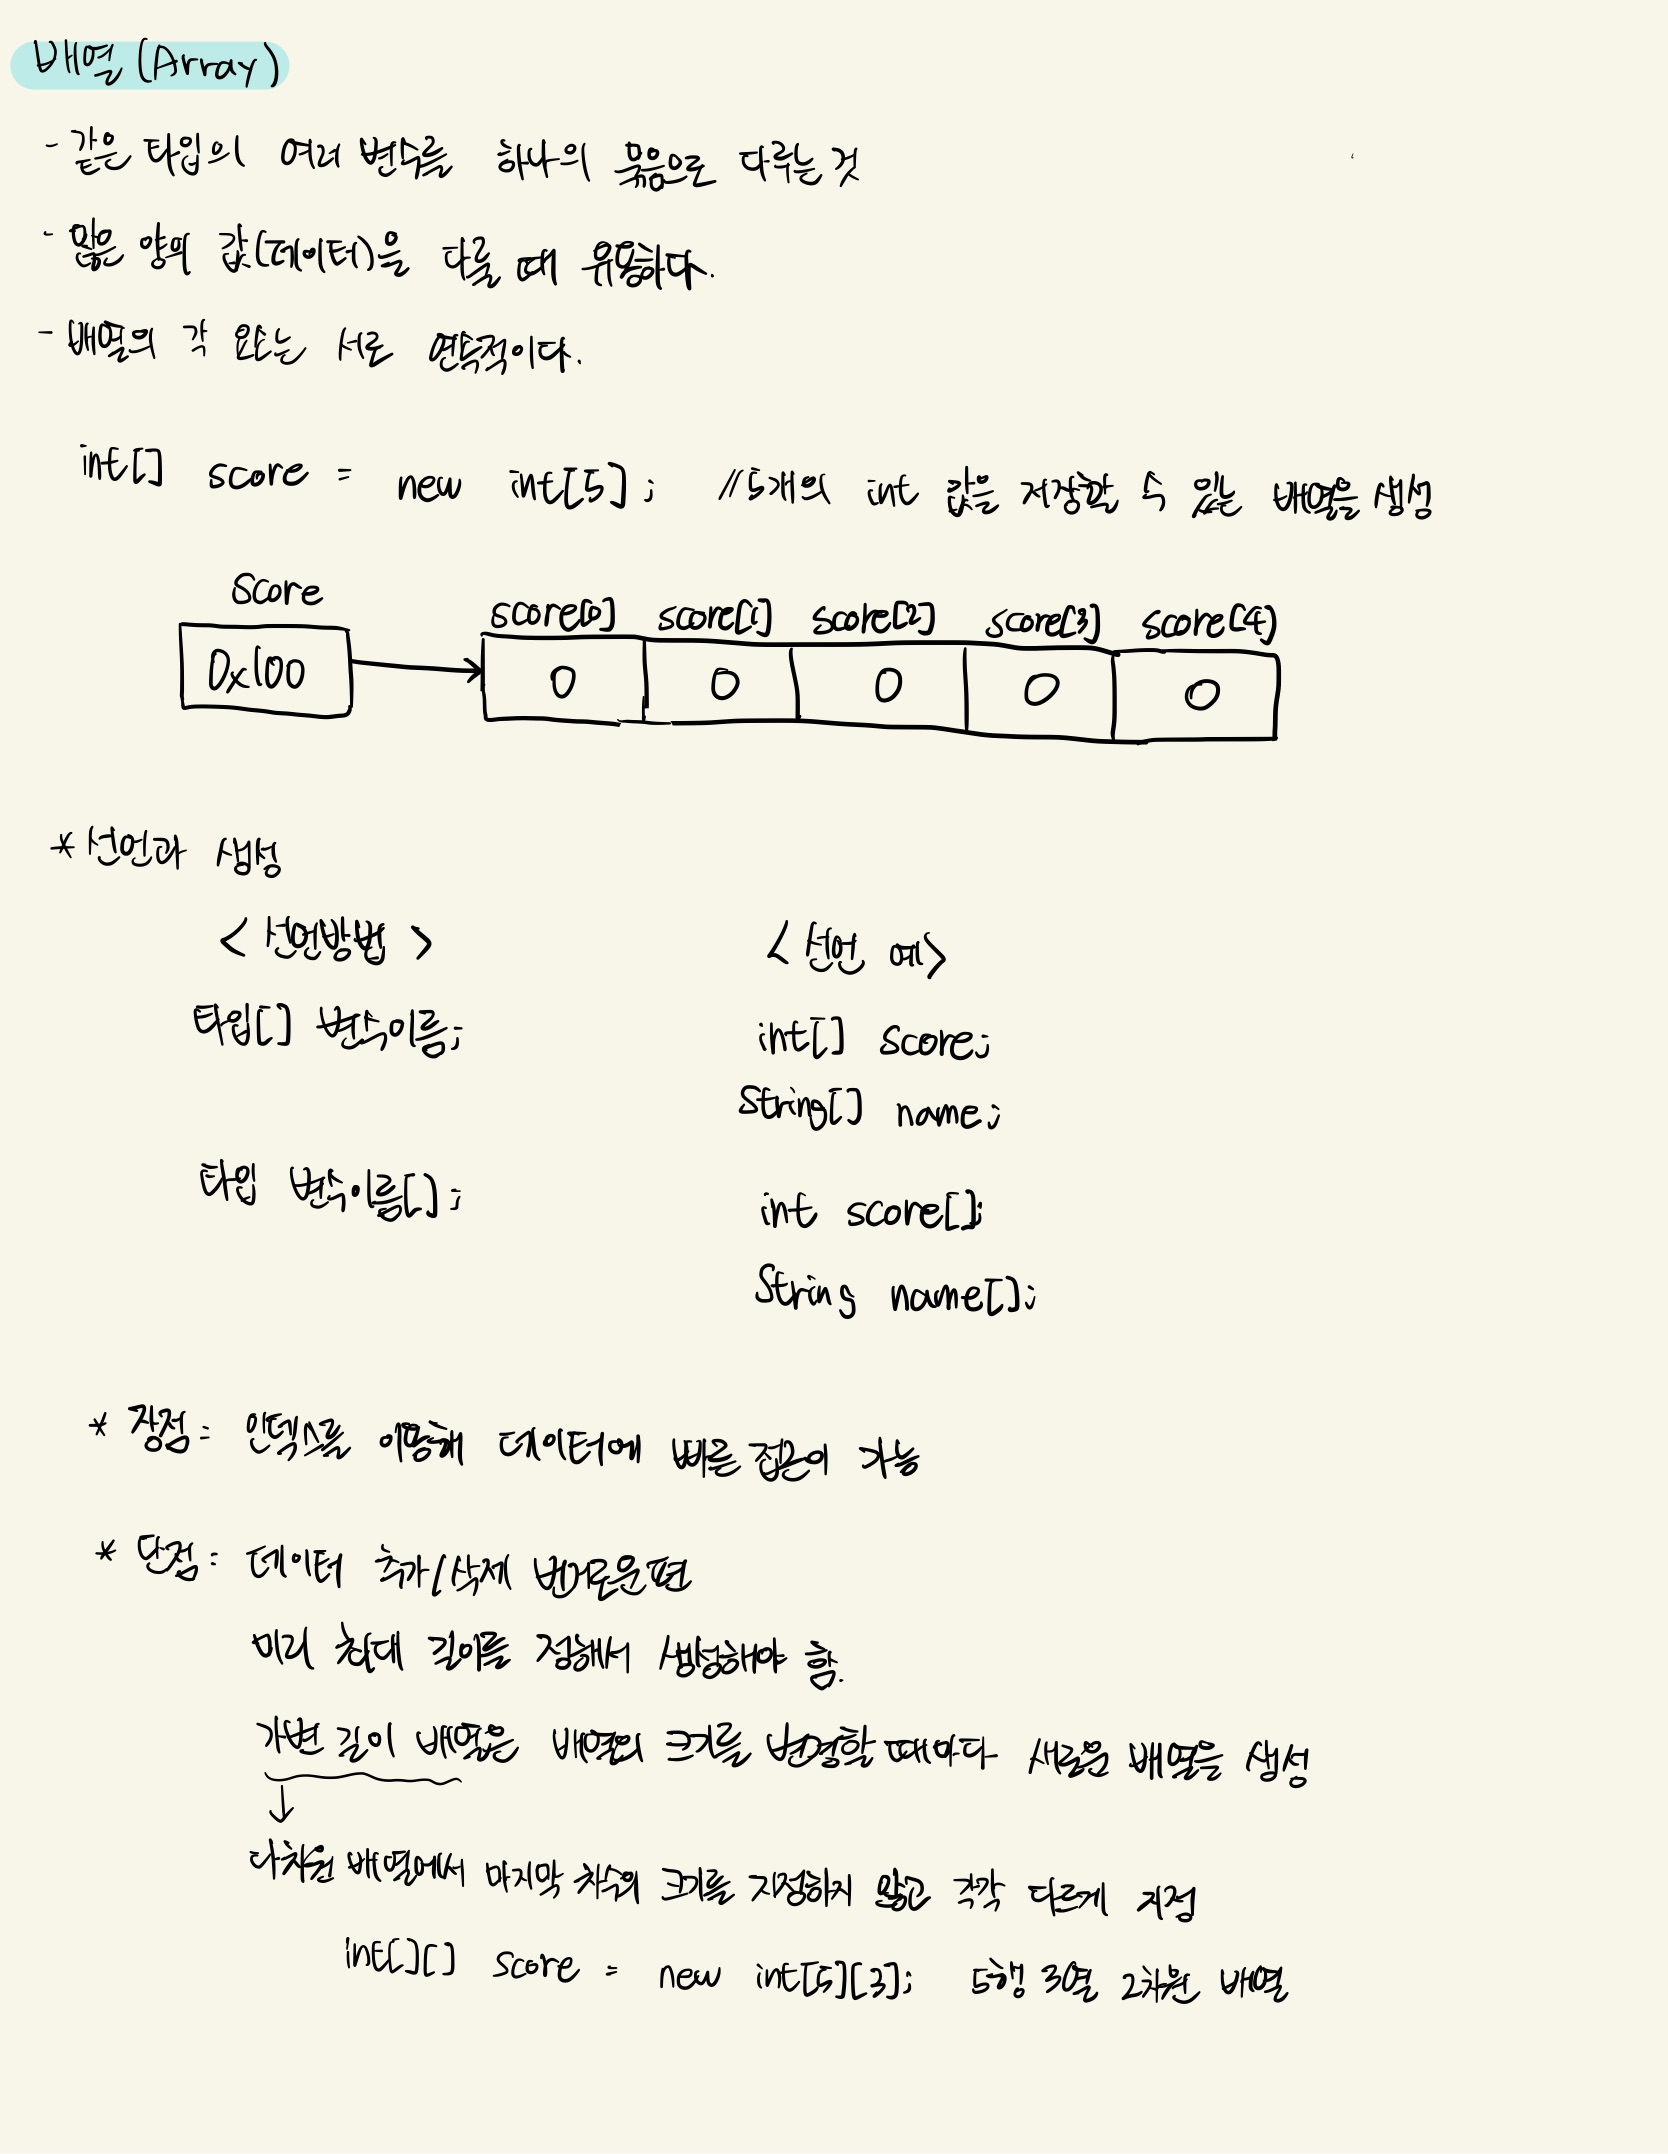 배열 (Array)
- 같은 타입의 여러 변수를 하나의 묶음으로 다루는 것
- 많은 양의 값(데이터)을 다룰 때 유용하다.
- 배열의 각 요소는 서로 연속적이다.
int[] score = new int[5]; //5개의 int 값을 저장할 수 있는 배열을 생성
score
score[0] score[1] score[2] score[3] score[4]
0x100 0 0 0 0 0
* 선언과 생성
< 선언방법 > < 선언 예>
타입[] 변수이름; int[] score;
String[] name;
타입 변수이름[]; int score[];
String name[];
* 장점: 인덱스를 이용해 데이터에 빠른 접근이 가능
* 단점: 데이터 추가/삭제 번거로운편
미리 최대 길이를 정해서 생성해야 함.
가변 길이 배열은 배열의 크기를 변경할 때마다 새로운 배열을 생성
↓
다차원 배열에서 마지막 차수의 크기를 지정하지 않고 각각 다르게 지정
int[][] score = new int[5][3]; 5행 3열 2차원 배열